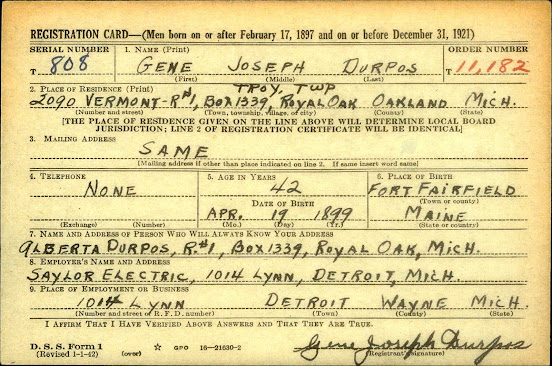 REGISTRATION CARD—(Men born on or after February 17, 1897 and on or before December 31, 1921)
SERIAL NUMBER 1. NAME (Print) ORDER NUMBER
T 808 GENE JOSEPH DURPOS T 11,182
(First) (Middle) (Last)
2. PLACE OF RESIDENCE (Print) TROY, TWP
2090 VERMONT-R#1, BOX 1339, ROYAL OAK OAKLAND MICH.
(Number and street) (Town, township, village, or city) (County) (State)
[THE PLACE OF RESIDENCE GIVEN ON THE LINE ABOVE WILL DETERMINE LOCAL BOARD
JURISDICTION; LINE 2 OF REGISTRATION CERTIFICATE WILL BE IDENTICAL]
3. MAILING ADDRESS
SAME
[Mailing address if other than place indicated on line 2. If same insert word same]
4. TELEPHONE 5. AGE IN YEARS 6. PLACE OF BIRTH
NONE 42 FORT FAIRFIELD
DATE OF BIRTH (Town or county)
APR. 19 1899 MAINE
(Exchange) (Number) (Mo.) (Day) (Yr.) (State or country)
7. NAME AND ADDRESS OF PERSON WHO WILL ALWAYS KNOW YOUR ADDRESS
ALBERTA DURPOS, R.#1, BOX 1339, ROYAL OAK, MICH.
8. EMPLOYER'S NAME AND ADDRESS
SAYLOR ELECTRIC, 1014 LYNN, DETROIT, MICH.
9. PLACE OF EMPLOYMENT OR BUSINESS
1014 LYNN DETROIT WAYNE MICH.
(Number and street or R. F. D. number) (Town) (County) (State)
I AFFIRM THAT I HAVE VERIFIED ABOVE ANSWERS AND THAT THEY ARE TRUE.
D. S. S. Form 1
(Revised 1-1-42) (over) ☆ GPO 16—21630-2 Gene Joseph Durpos
(Registrant's signature)